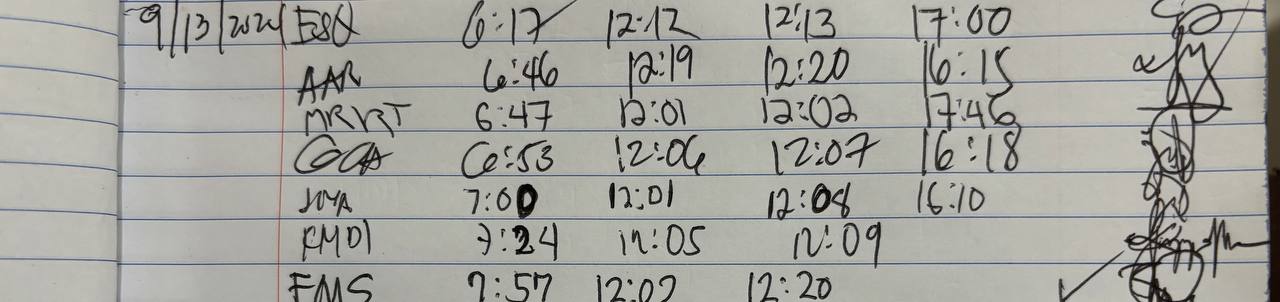 9/13/2024 ESQ 6:17 12:12 12:13 17:00
AAR 6:46 12:19 12:20 16:15
MRVRT 6:47 12:01 12:02 17:46
GCA 6:53 12:06 12:07 16:18
JMA 7:00 12:01 12:08 16:10
KMDI 7:24 12:05 12:09
EMS 7:57 12:02 12:20